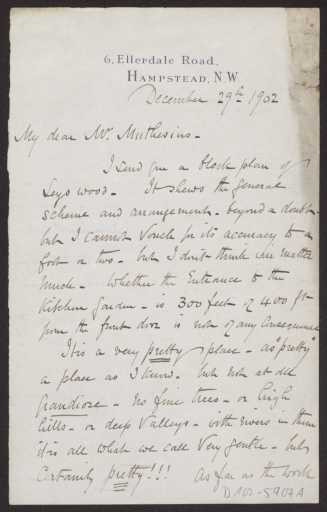 6, Ellerdale Road,
Hampstead, N.W
December 29th 1902
My dear Mr. Muthesius -
I send you a block plan of
Leyswood - It shews the general
scheme and arrangement - beyond a doubt -
but I cannot vouch for its accuracy to a
foot or two - but I don't think this matters
much - Whether the Entrance to the
Kitchen Garden - is 300 feet or 400 ft
from the front door is not of any Consequence
It is a very pretty place - as "pretty"
a place as I know. but not at all
Grandiose - No fine trees - or high
hills - or deep Valleys - with rivers in them
it is all what we call Very gentle - but
Certainly pretty!!! As far as the work
D 102-5907A